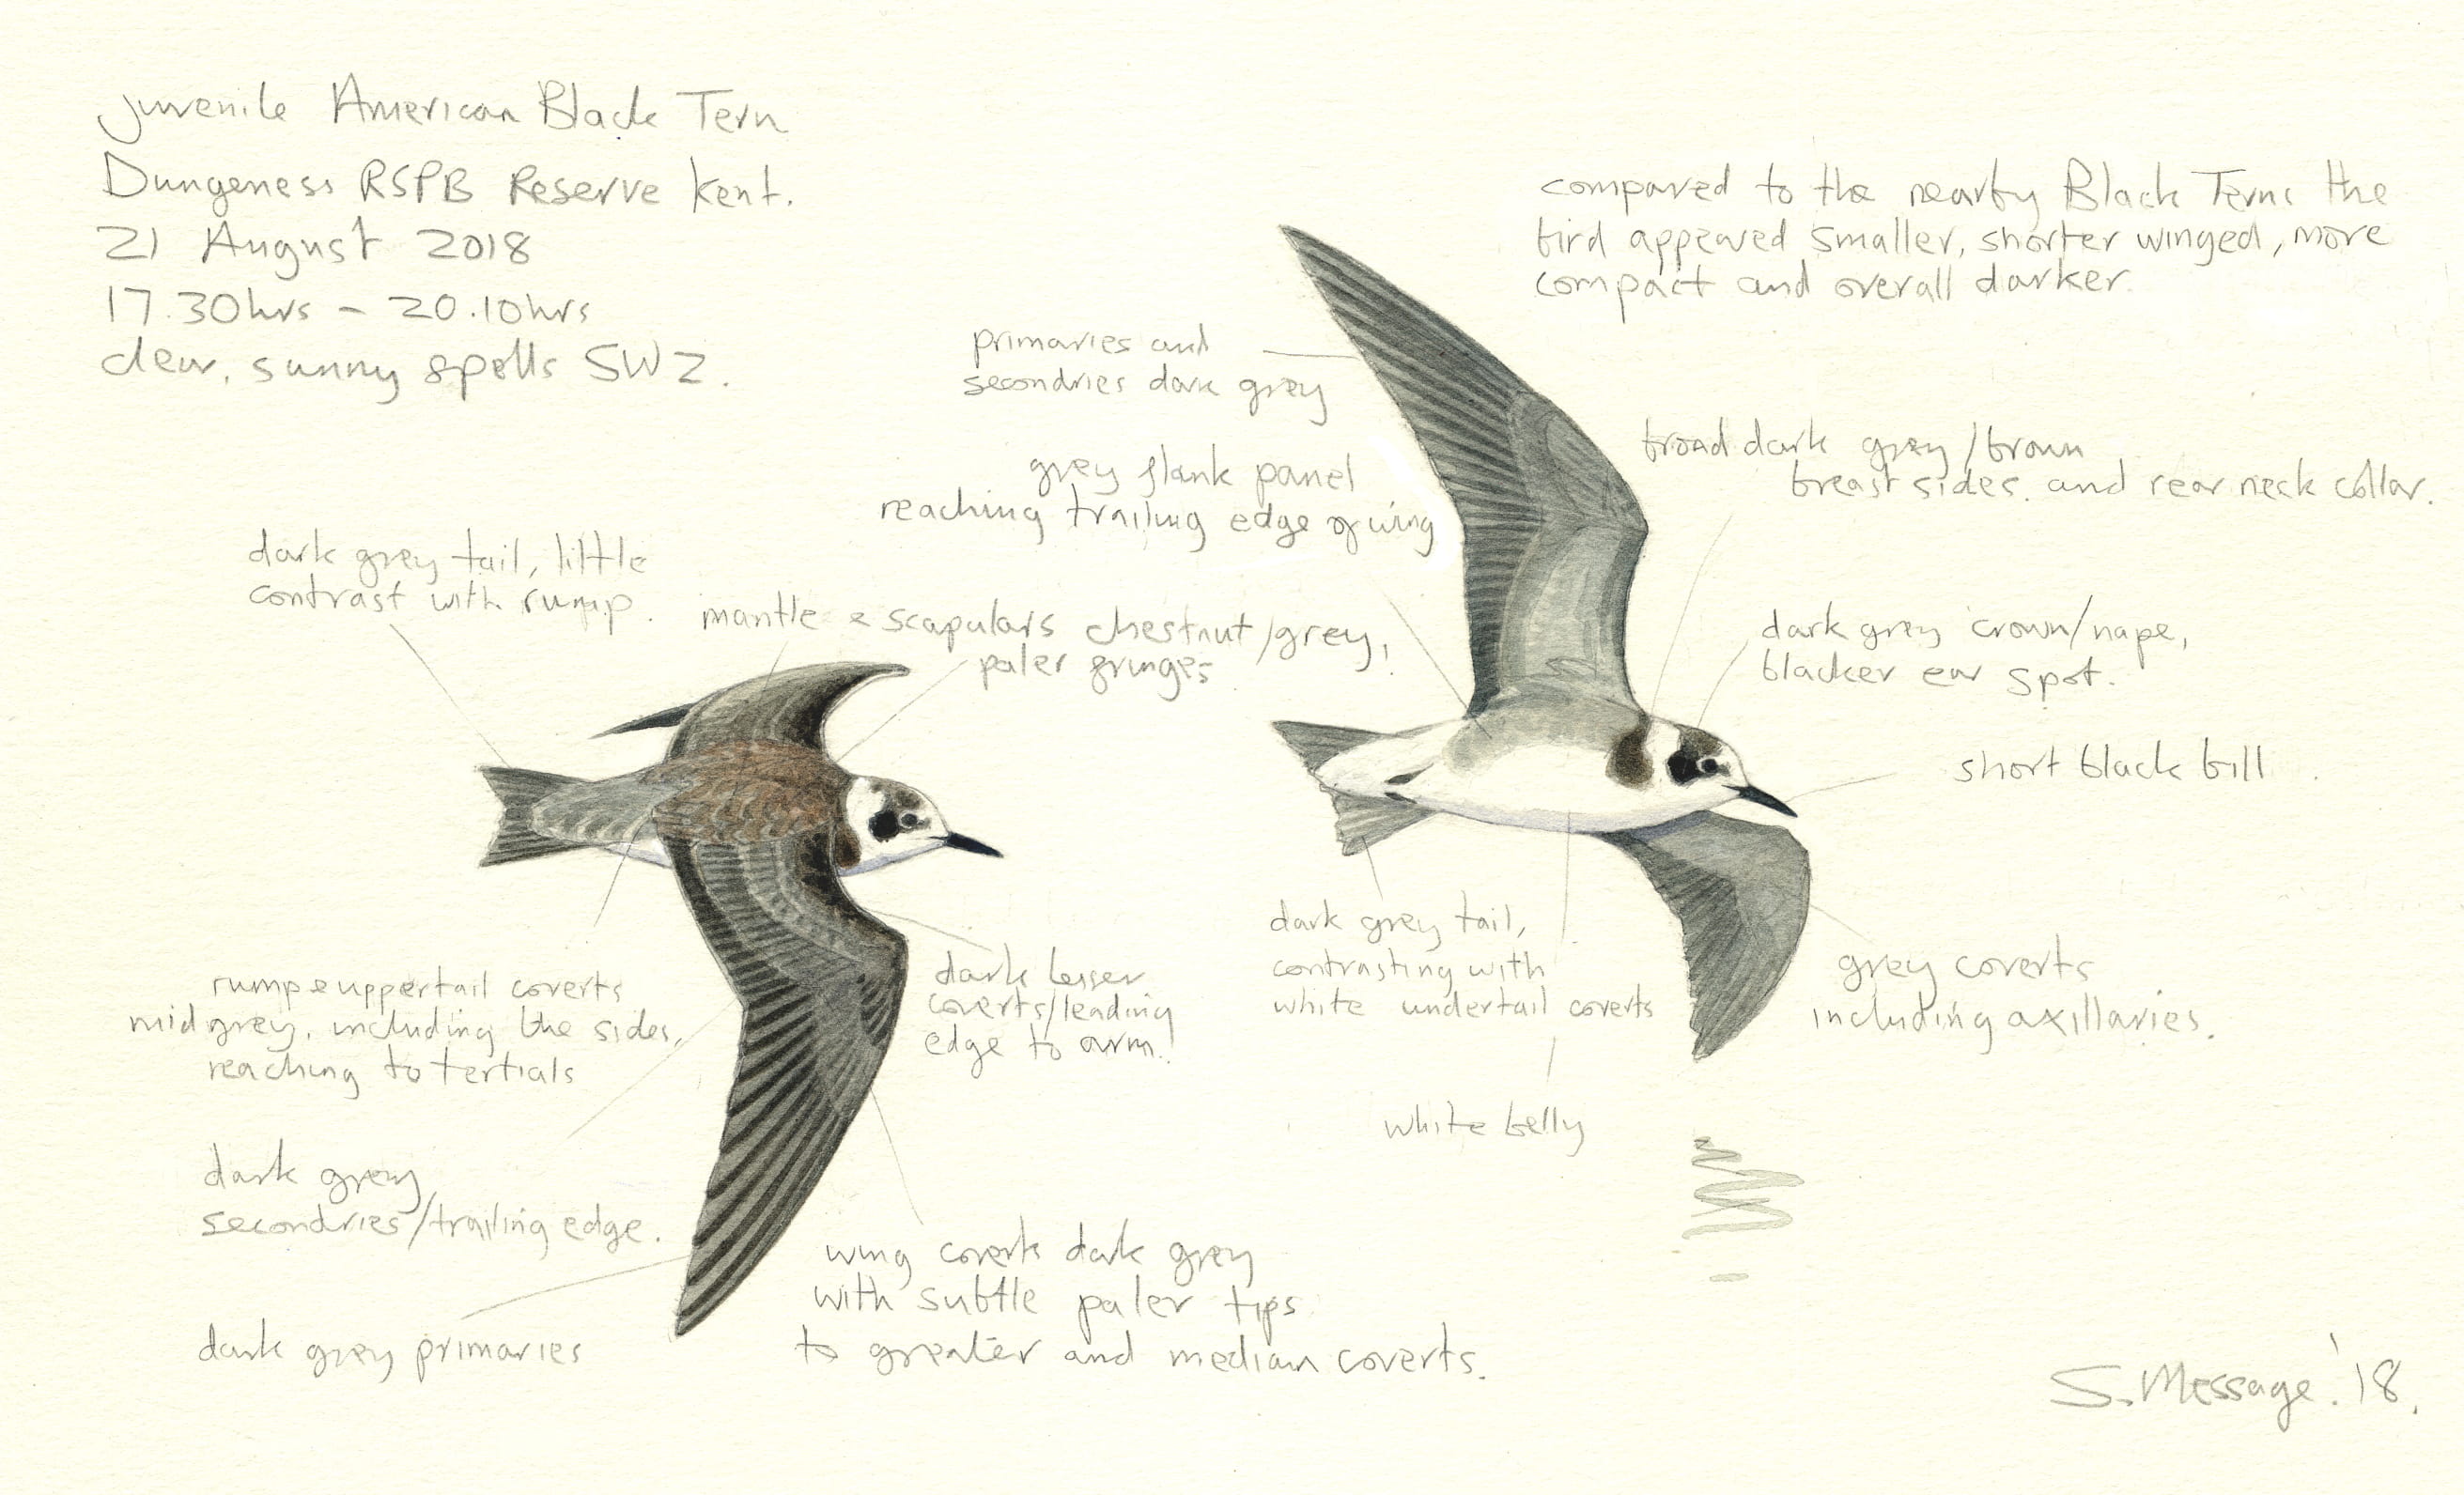 juvenile American Black Tern
Dungeness RSPB Reserve Kent.
21 August 2018
17.30hrs - 20.10hrs
clear, sunny spells SW2.
compared to the nearby Black Terns the
bird appeared smaller, shorter winged, more
compact and overall darker.
primaries and
secondries dark grey
grey flank panel
reaching trailing edge of wing
broad dark grey/brown
breast sides. and rear neck collar.
dark grey tail, little
contrast with rump.
mantle & scapulars chestnut/grey,
paler fringes
dark grey crown/nape,
blacker ear spot.
short black bill
rump & uppertail coverts
mid grey, including the sides,
reaching to tertials
dark lesser
coverts/leading
edge to arm.
dark grey tail,
contrasting with
white undertail coverts
grey coverts
including axillaries.
white belly
dark grey
secondries/trailing edge.
dark grey primaries
wing coverts dark grey
with subtle paler tips
to greater and median coverts.
S. Message '18.